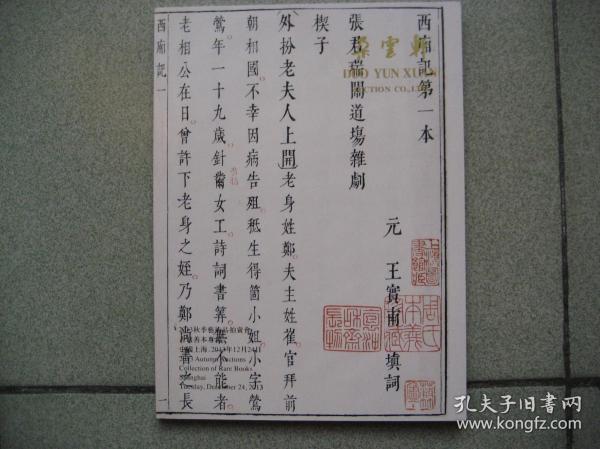 西廂記第一本
張君瑞鬧道塲雜劇
元 王實甫 填詞
楔子
外扮老夫人上開老身姓鄭夫主姓崔官拜前
朝相國不幸因病告殂秪生得箇小姐小字鶯
鶯年一十九歲針黹女工詩詞書筭無不能者
老相公在日曾許下老身之姪乃鄭尚書之長
西廂記一
一
朵雲軒
DUO YUN XUAN
AUCTION CO., LTD
2013秋季藝術品拍賣會
中國上海 2013年12月24日
2013 Autumn Auctions
Collection of Rare Books
Shanghai
Tuesday, December 24, 2013
孔夫子旧书网
www.kongfz.com